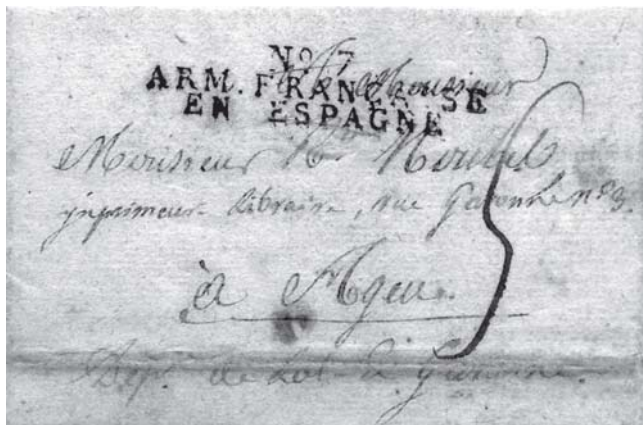 No. 7
ARM. FRANÇAISE
EN ESPAGNE
A Monsieur
Monsieur
imprimeur libraire, rue Garonne n.º 3.
à Agen.
Dep.t de Lot & Garonne.
5